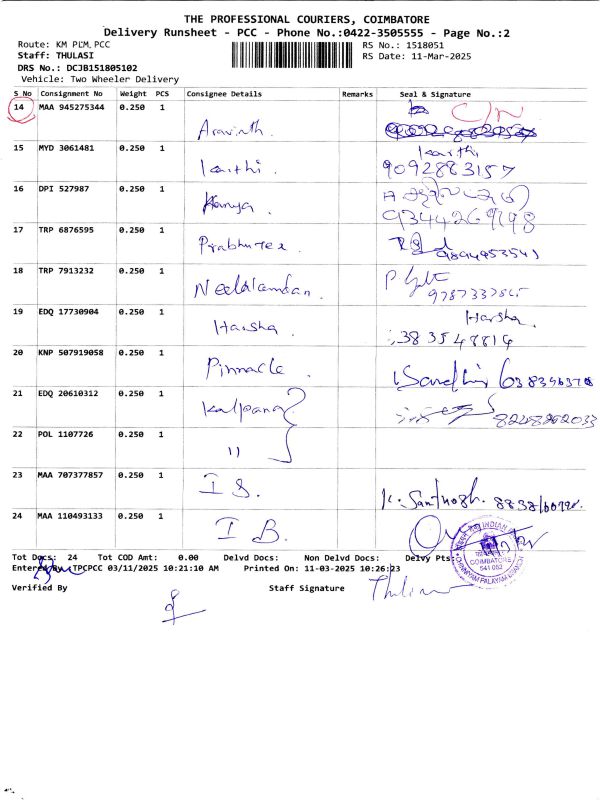 THE PROFESSIONAL COURIERS, COIMBATORE
Delivery Runsheet - PCC - Phone No.:0422-3505555 - Page No.:2
Route: KM PLM, PCC
RS No.: 1518051
Staff: THULASI
RS Date: 11-Mar-2025
DRS No.: DCJB151805102
Vehicle: Two Wheeler Delivery
S No Consignment No Weight PCS Consignee Details Remarks Seal & Signature
14 MAA 945275344 0.250 1 Aravinth. C/N
15 MYD 3061481 0.250 1 Karthi. Karthi
9092883157
16 DPI 527987 0.250 1 Kanya.
9344269198
17 TRP 6876595 0.250 1 Prabhu Tex
18 TRP 7913232 0.250 1 Neelakandan.
19 EDQ 17730904 0.250 1 Harsha. Harsha.
20 KNP 507919058 0.250 1 Pinnacle.
21 EDQ 20610312 0.250 1 Kalpana
8248862033
22 POL 1107726 0.250 1 "
23 MAA 707377857 0.250 1 I S. K. Santhosh.
24 MAA 110493133 0.250 1 I B.
INDIAN
COIMBATORE
641 062
CHINNIYAM PALAYAM BRANCH
Tot Docs: 24 Tot COD Amt: 0.00 Delvd Docs: Non Delvd Docs: Delvy Pts:
Entered By: TPCPCC 03/11/2025 10:21:10 AM Printed On: 11-03-2025 10:26:23
Verified By Staff Signature